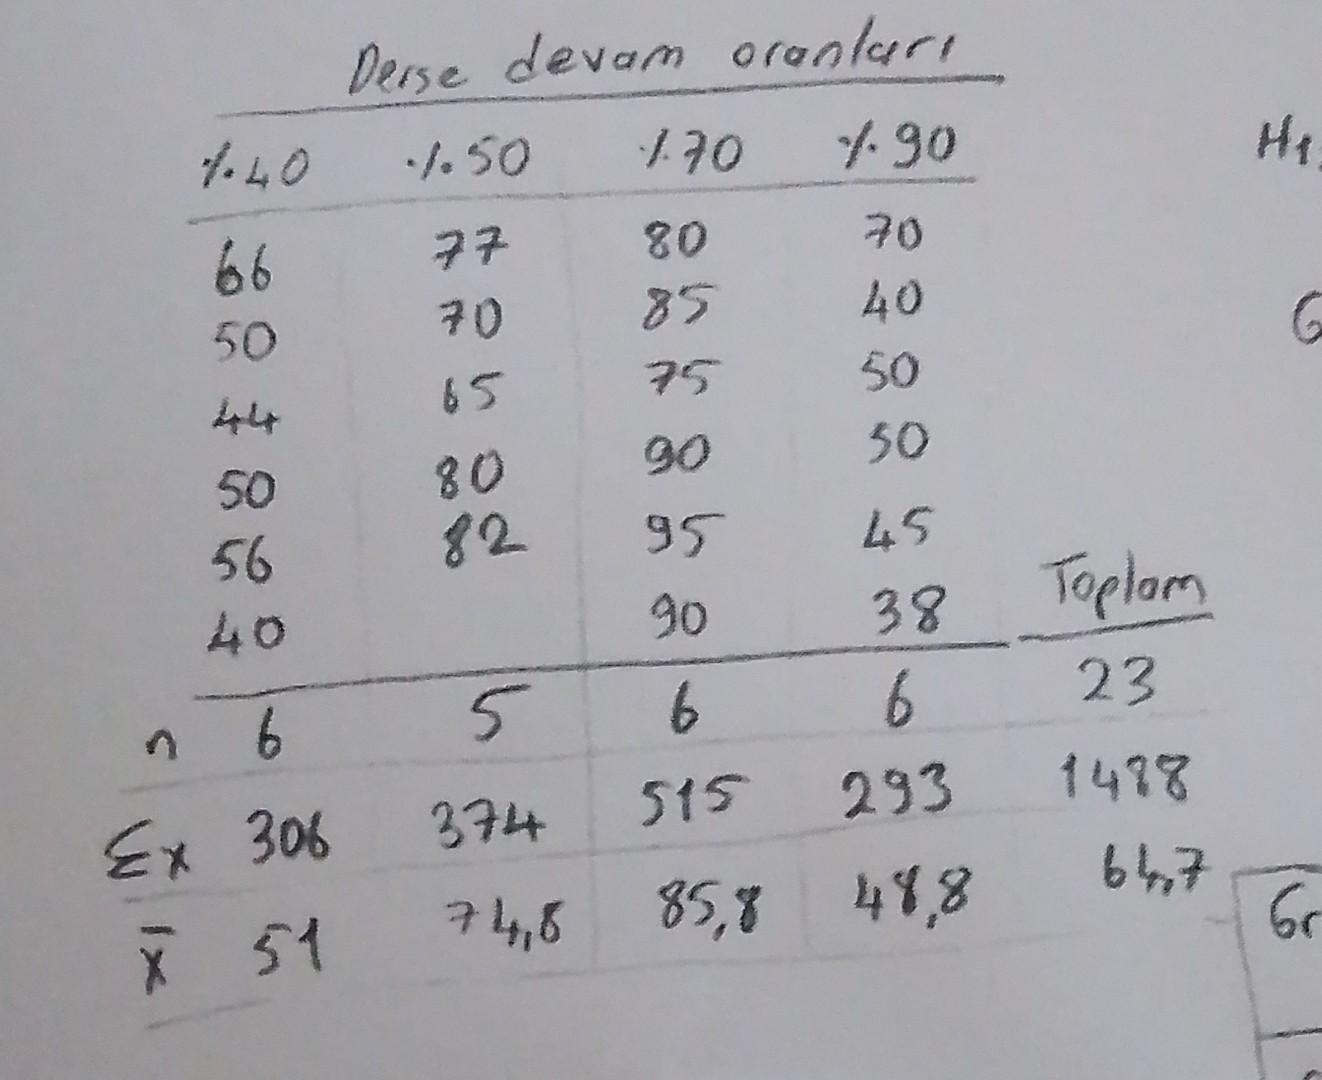 Derse devam oranları
%40 %50 %70 %90
H1:
66 77 80 70
50 70 85 40
G
44 65 75 50
50 80 90 50
56 82 95 45
40 90 38 Toplam
n 6 5 6 6 23
Σx 306 374 515 293 1488
x̄ 51 74,8 85,8 48,8 64,7
Gr